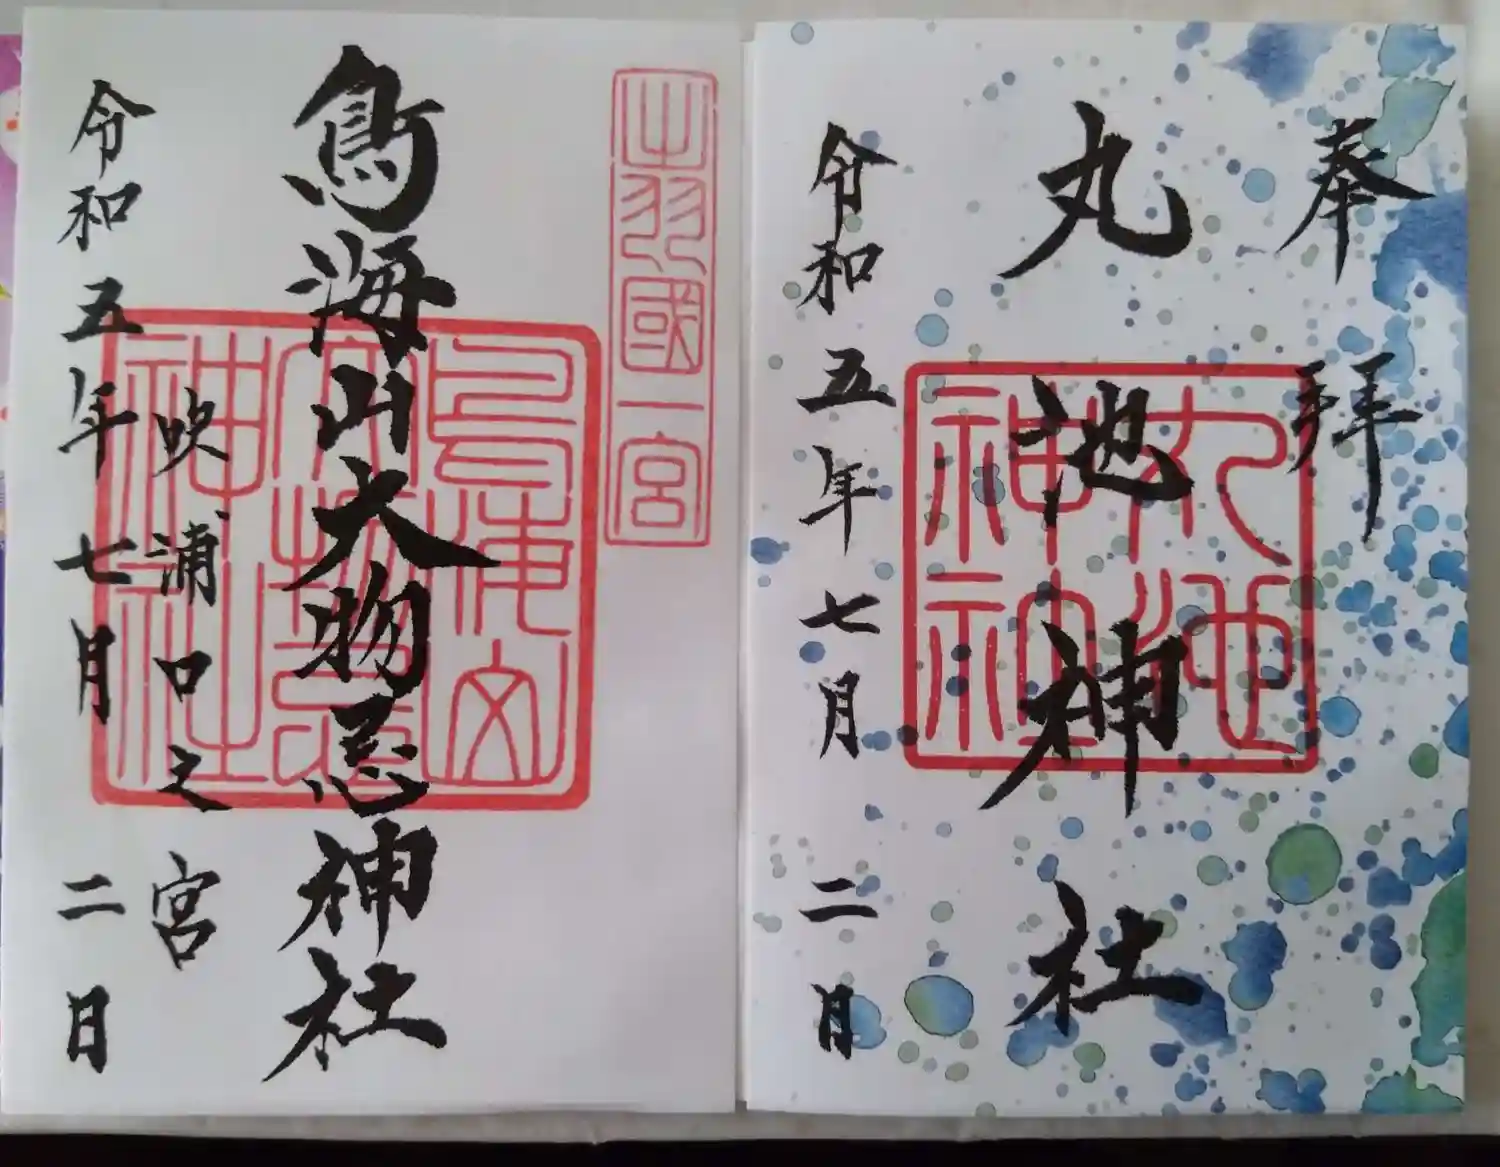 奉拝
丸池神社
丸池神社
令和五年七月二日
出羽國一宮
鳥海山大物忌神社
吹浦口之宮
令和五年七月二日